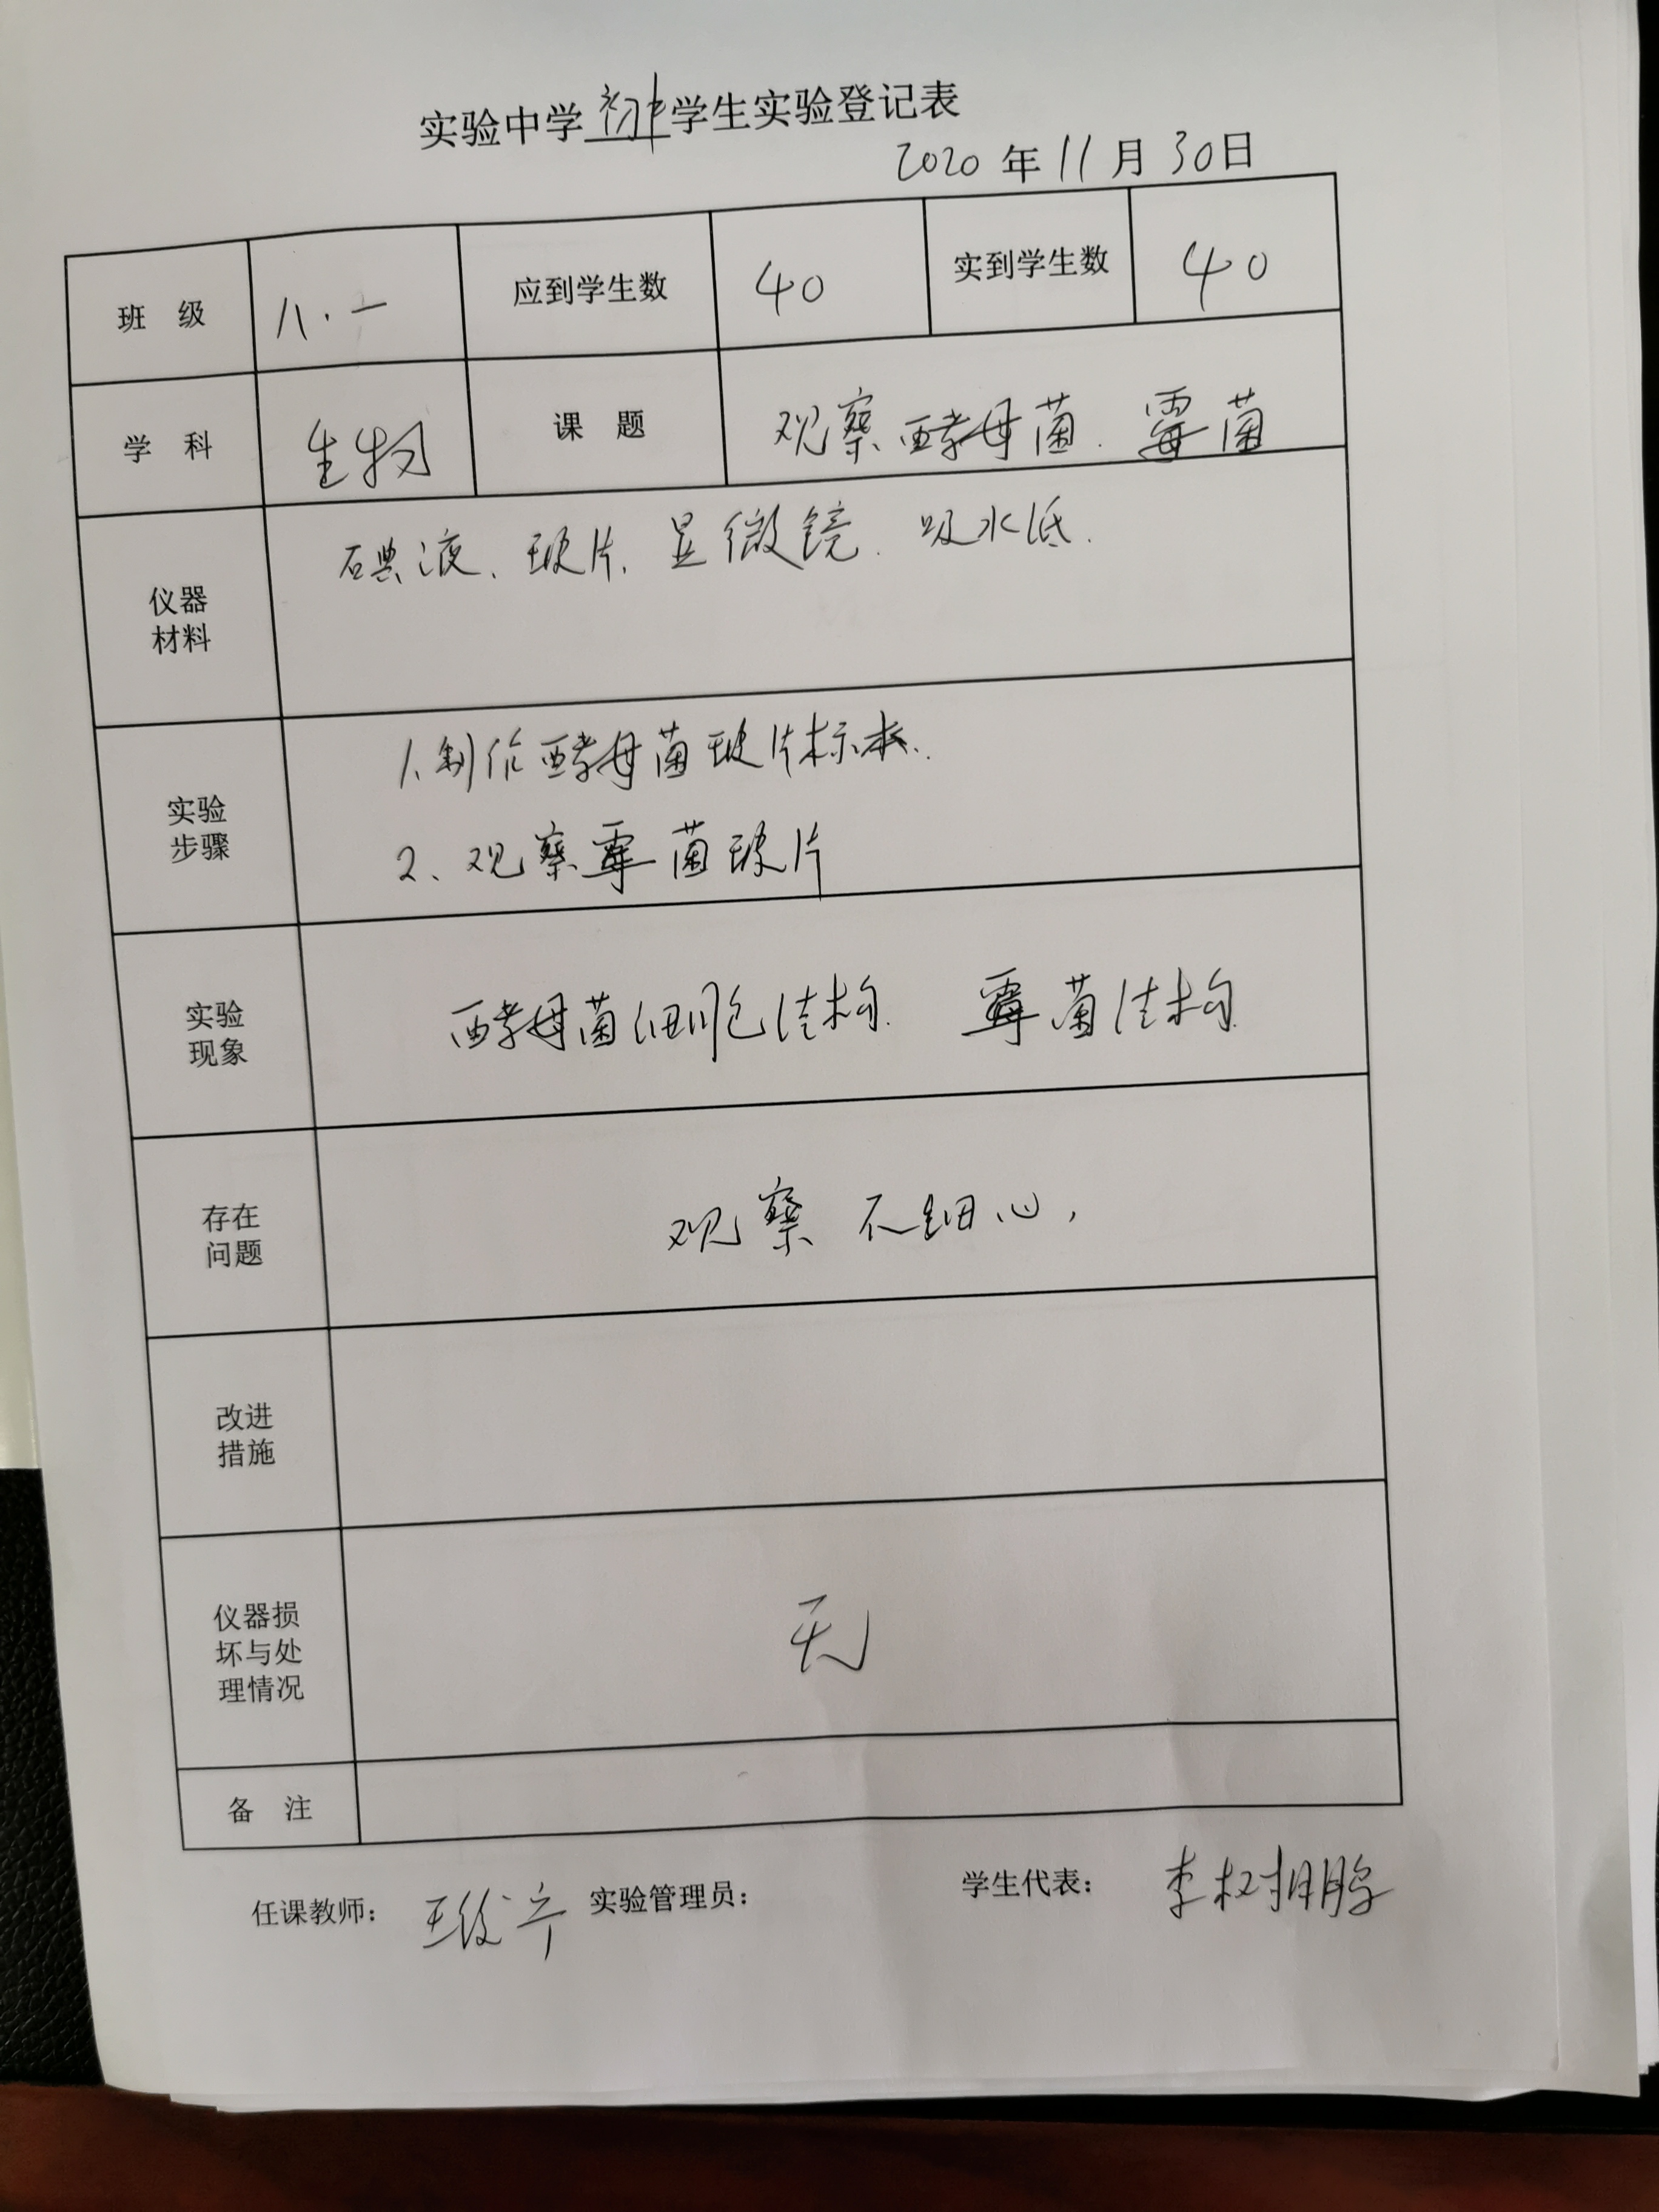 实验中学初中学生实验登记表
2020年11月30日
班 级 八.一 应到学生数 40 实到学生数 40
学 科 生物 课 题 观察酵母菌.霉菌
仪器
材料
碘液、玻片、显微镜.吸水纸.
实验
步骤
1.制作酵母菌玻片标本.
2、观察霉菌玻片
实验
现象
酵母菌细胞结构. 霉菌结构.
存在
问题
观察不细心,
改进
措施
仪器损
坏与处
理情况
无
备 注
任课教师: 实验管理员: 学生代表: